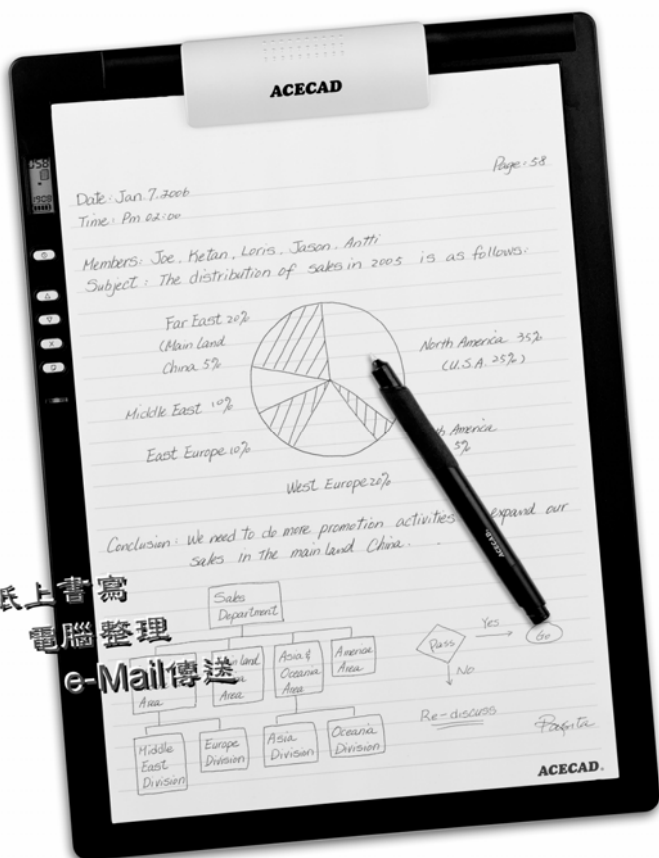 ACECAD
Page: 58
Date: Jan. 7. 2006
Time: Pm 02:00
Members: Joe, Ketan, Loris, Jason, Antti
Subject: The distribution of sales in 2005 is as follows:
Far East 20%
(Main land
China 5%
North America 35%
(U.S.A. 25%)
Middle East 10%
th America
5%
East Europe 10%
West Europe 20%
Conclusion: We need to do more promotion activities expand our
sales in the main land China.
紙上書寫
電腦整理
e-Mail傳送
Sales
Department
land
Area
Area
Asia &
Oceania
Area
America
Area
Middle
East
Division
Europe
Division
Asia
Division
Oceania
Division
Pass
Yes
Go
No
Re-discuss
ACECAD.
ACECAD.